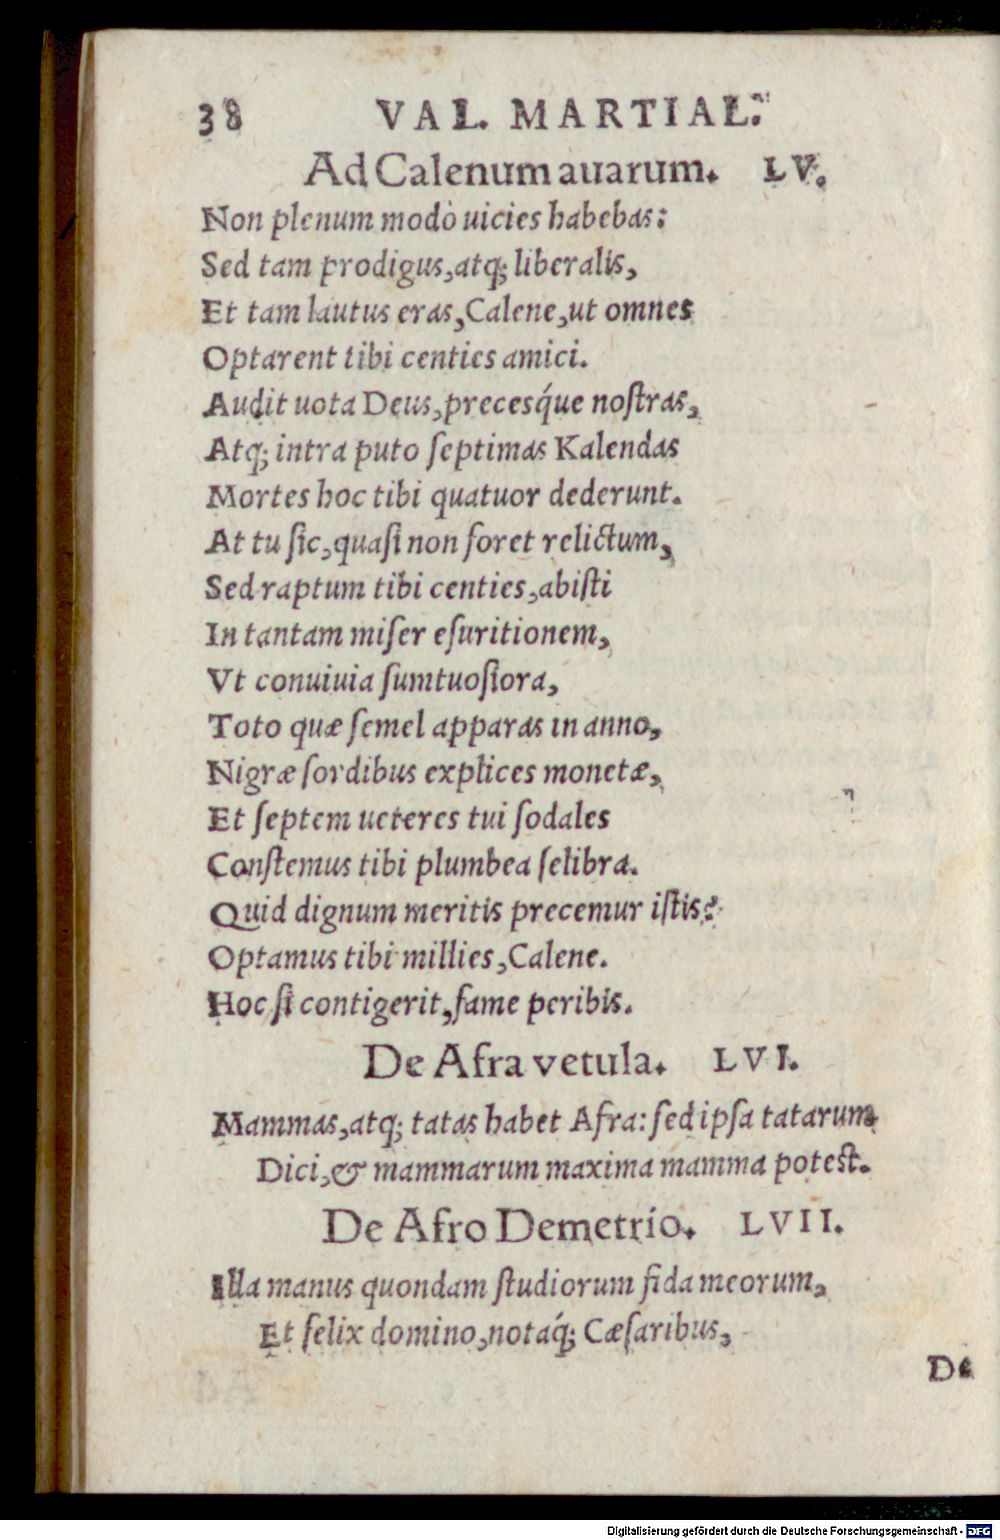 38 VAL. MARTIAL.
Ad Calenum auarum. LV.
Non plenum modò uicies habebas:
Sed tam prodigus, atq; liberalis,
Et tam lautus eras, Calene, ut omnes
Optarent tibi centies amici.
Audit uota Deus, precesq́ue noſtras,
Atq; intra puto ſeptimas Kalendas
Mortes hoc tibi quatuor dederunt.
At tu ſic, quaſi non foret relictum,
Sed raptum tibi centies, abiſti
In tantam miſer eſuritionem,
Vt conuiuia ſumtuoſiora,
Toto quæ ſemel apparas in anno,
Nigræ ſordibus explices monetæ,
Et ſeptem ueteres tui ſodales
Conſtemus tibi plumbea ſelibra.
Quid dignum meritis precemur iſtis?
Optamus tibi millies, Calene.
Hoc ſi contigerit, fame peribis.
De Afra vetula. LVI.
Mammas, atq; tatas habet Afra: ſed ipſa tatarum
Dici, & mammarum maxima mamma poteſt.
De Afro Demetrio. LVII.
Illa manus quondam ſtudiorum fida meorum,
Et felix domino, notaq́; Cæſaribus,
De
Digitalisierung gefördert durch die Deutsche Forschungsgemeinschaft - DFG